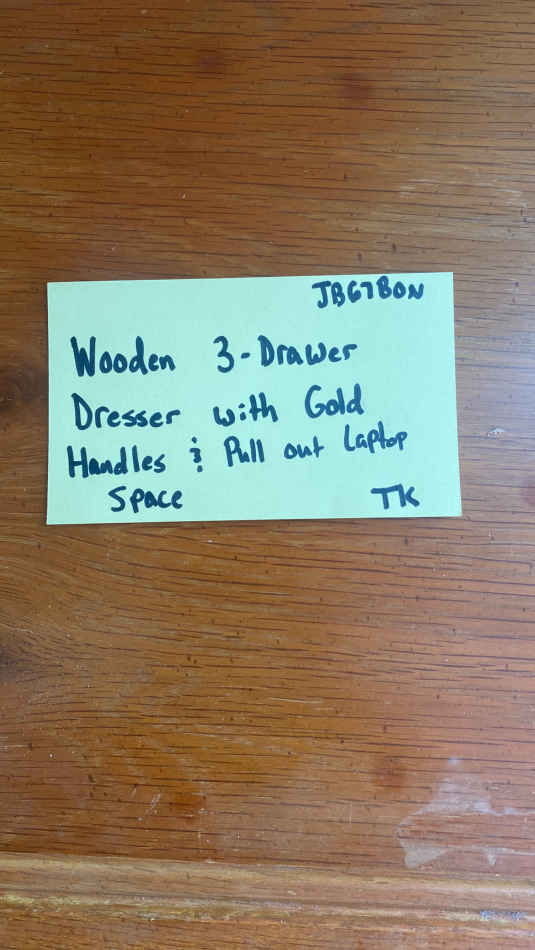 JBG7BON
Wooden 3-Drawer
Dresser with Gold
Handles & Pull out Laptop
Space
TK